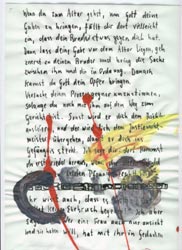 Wenn du zum Altar gehst, um Gott deine
Gaben zu bringen, fällt dir dort vielleicht
ein, dass dein Bruder etwas gegen dich hat.
Dann lass deine Gabe vor dem Altar liegen, geh
zuerst zu deinem Bruder und bring die Sache
zwischen ihm und dir in Ordnung. Danach
kannst du Gott dein Opfer bringen.
Versuche deinen Prozessgegner umzustimmen,
solange du noch mit ihm auf dem Weg zum
Gericht bist. Sonst wird er dich dem Richter
ausliefern und der wird dich dem
übergeben, damit er dich ins
Gefängnis steckt. Ich sage dir: dort kommst
du nicht wieder heraus,
letzten Pfennig
Ihr wisst auch, dass es
Ehebruch
eine Frau auch nur ansieht
und sie haben will, hat mit ihr in Gedanken